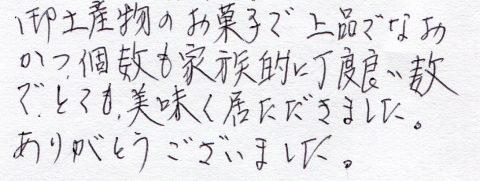 御土産物のお菓子で上品でなお
かつ、個数も家族的に丁度良い数
で、とても、美味く居ただきました。
ありがとうございました。